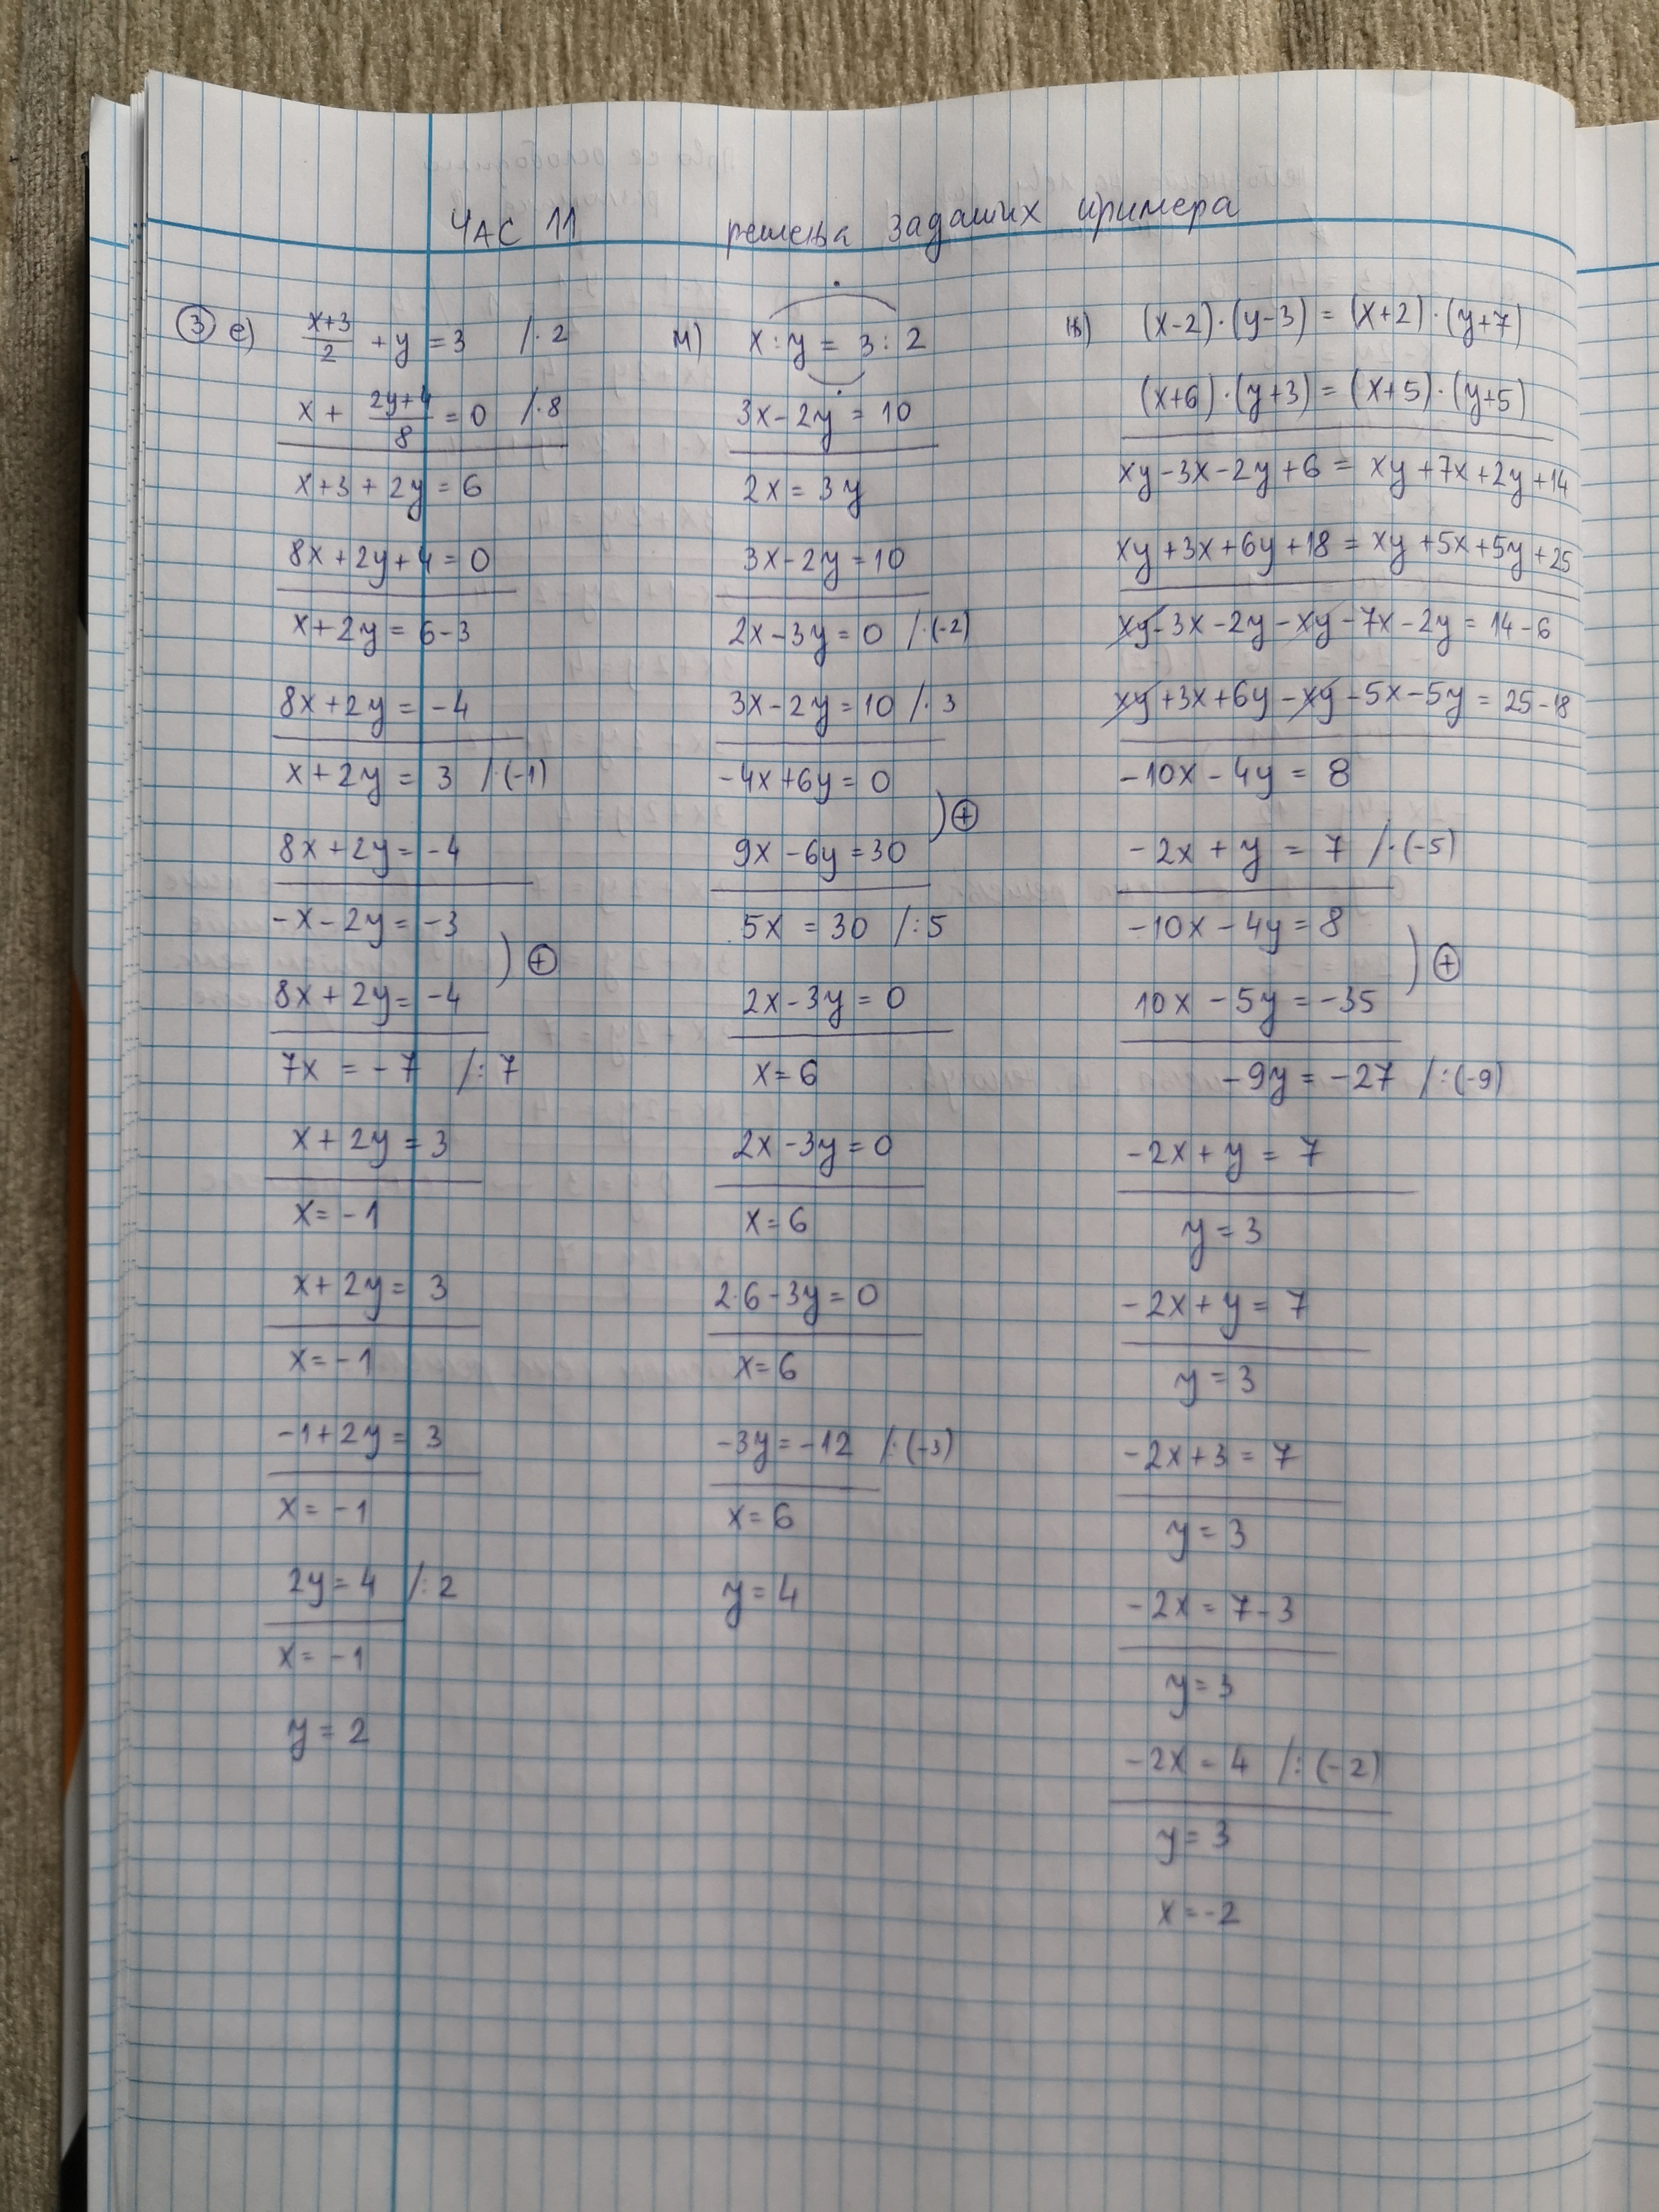 ЧАС 11 решења задатих примера
③ е) x+3/2 + y = 3 /·2
x + 2y+4/8 = 0 /·8
x+3+2y=6
8x+2y+4=0
x+2y=6-3
8x+2y=-4
x+2y=3 /·(-1)
8x+2y=-4
-x-2y=-3
)⊕
8x+2y=-4
7x=-7 /:7
x+2y=3
x=-1
x+2y=3
x=-1
-1+2y=3
x=-1
2y=4 /:2
x=-1
y=2
x:y=3:2
3x-2y=10
2x=3y
3x-2y=10
2x-3y=0 /·(-2)
3x-2y=10 /·3
-4x+6y=0
)⊕
9x-6y=30
5x=30 /:5
2x-3y=0
x=6
2x-3y=0
x=6
2·6-3y=0
x=6
-3y=-12 /:(-3)
x=6
y=4
(x-2)·(y-3)=(x+2)·(y+7)
(x+6)·(y+3)=(x+5)·(y+5)
xy-3x-2y+6=xy+7x+2y+14
xy+3x+6y+18=xy+5x+5y+25
xy-3x-2y-xy-7x-2y=14-6
xy+3x+6y-xy-5x-5y=25-18
-10x-4y=8
-2x+y=7 /·(-5)
-10x-4y=8
)⊕
10x-5y=-35
-9y=-27 /:(-9)
-2x+y=7
y=3
-2x+y=7
y=3
-2x+3=7
y=3
-2x=7-3
y=3
-2x=4 /:(-2)
y=3
x=-2